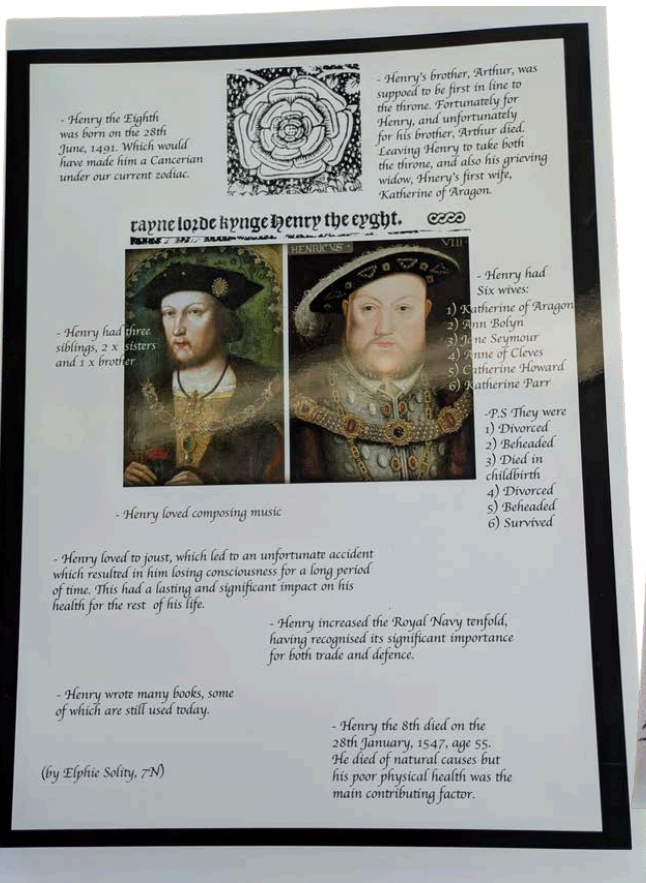 - Henry the Eighth
was born on the 28th
June, 1491. Which would
have made him a Cancerian
under our current zodiac.
- Henry's brother, Arthur, was
suppoed to be first in line to
the throne. Fortunately for
Henry, and unfortunately
for his brother, Arthur died.
Leaving Henry to take both
the throne, and also his grieving
widow, Hnery's first wife,
Katherine of Aragon.
rayne lorde kynge Henry the eyght.
HENRICVS
VIII
- Henry had three
siblings, 2 x sisters
and 1 x brother
- Henry had
Six wives:
1) Katherine of Aragon
2) Ann Bolyn
3) Jane Seymour
4) Anne of Cleves
5) Catherine Howard
6) Katherine Parr
-P.S They were
1) Divorced
2) Beheaded
3) Died in
childbirth
4) Divorced
5) Beheaded
6) Survived
- Henry loved composing music
- Henry loved to joust, which led to an unfortunate accident
which resulted in him losing consciousness for a long period
of time. This had a lasting and significant impact on his
health for the rest of his life.
- Henry increased the Royal Navy tenfold,
having recognised its significant importance
for both trade and defence.
- Henry wrote many books, some
of which are still used today.
- Henry the 8th died on the
28th January, 1547, age 55.
He died of natural causes but
his poor physical health was the
main contributing factor.
(by Elphie Solity, 7N)